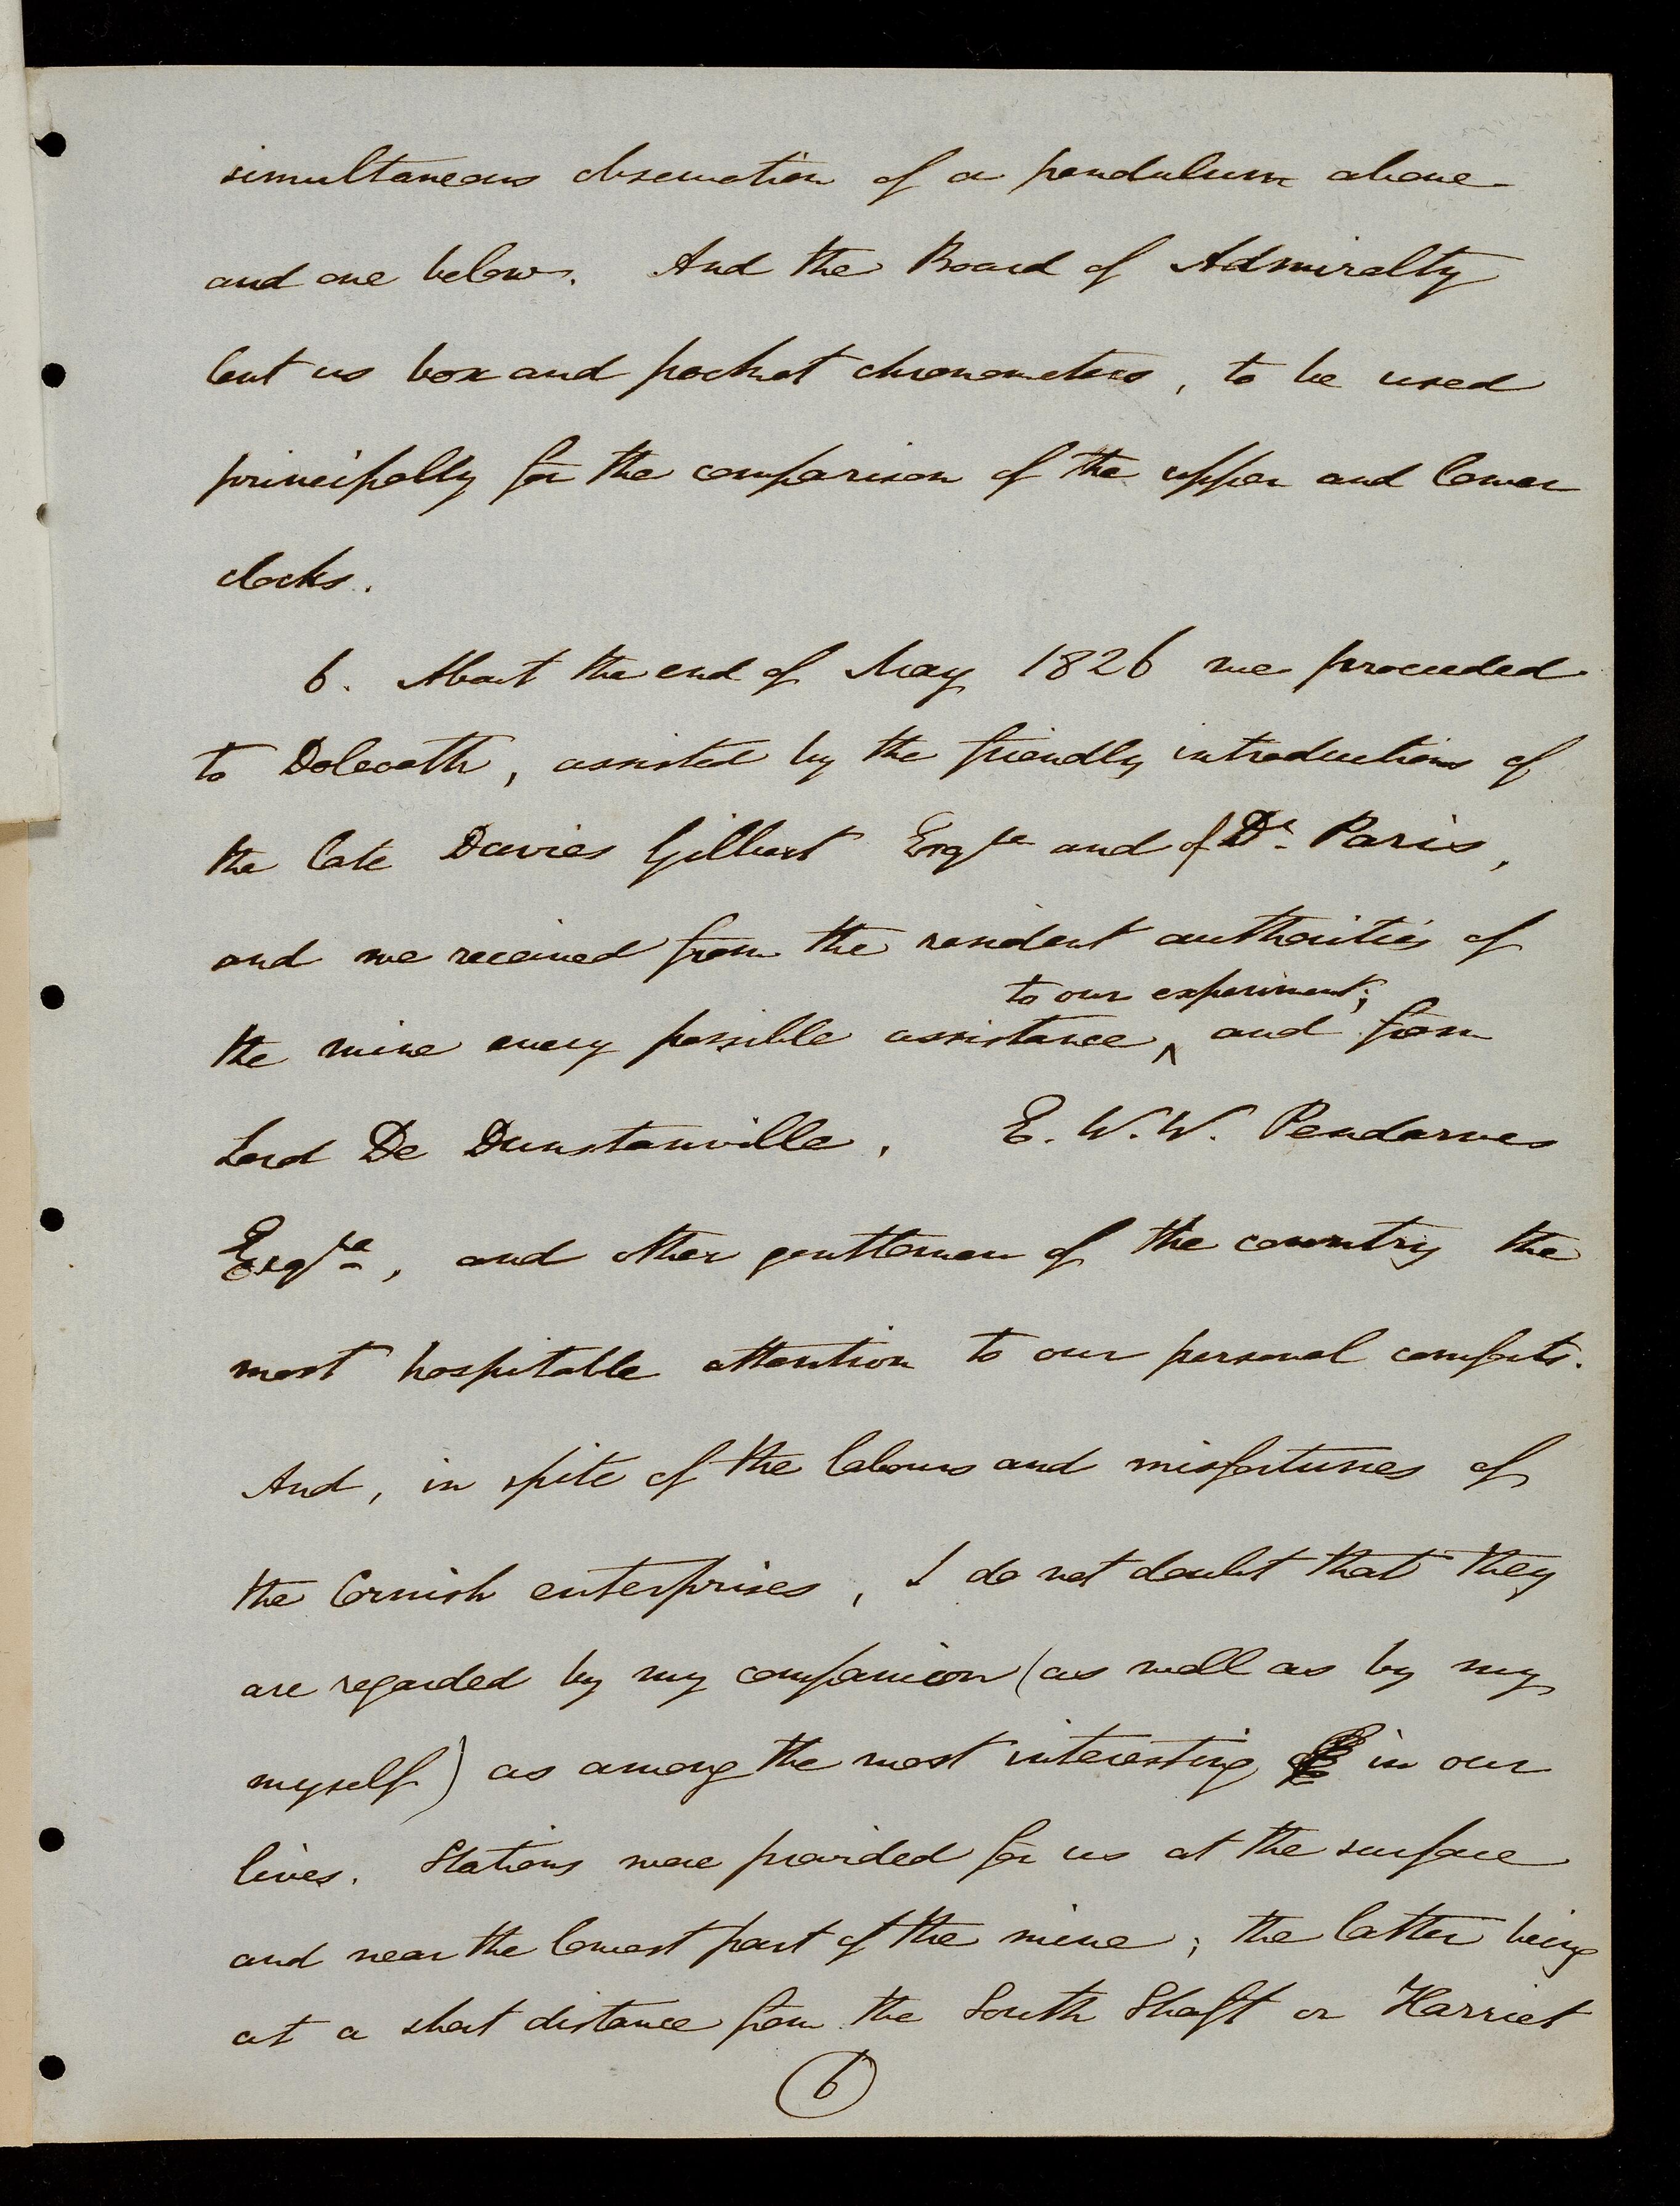 simultaneous observation of a pendulum above
and one below. And the Board of Admiralty
lent us box and pocket chronometers, to be used
principally for the comparison of the upper and lower
clocks.
6. About the end of May 1826 we proceeded
to Dolcoath, assisted by the friendly introductions of
the late Davies Gilbert Esqre and of Dr. Paris,
and we received from the resident authorities of
to our experiment;
the mine every possible assistance ^ and from
Lord De Dunstanville, E. W. W. Pendarves
Esqre, and other gentlemen of the country the
most hospitable attention to our personal comforts.
And, in spite of the labours and misfortunes of
the Cornish enterprises, I do not doubt that they
are regarded by my companion (as well as by my
myself) as among the most interesting in our
lives. Stations were provided for us at the surface
and near the lowest part of the mine; the latter being
at a short distance from the South Shaft or Harriet
6